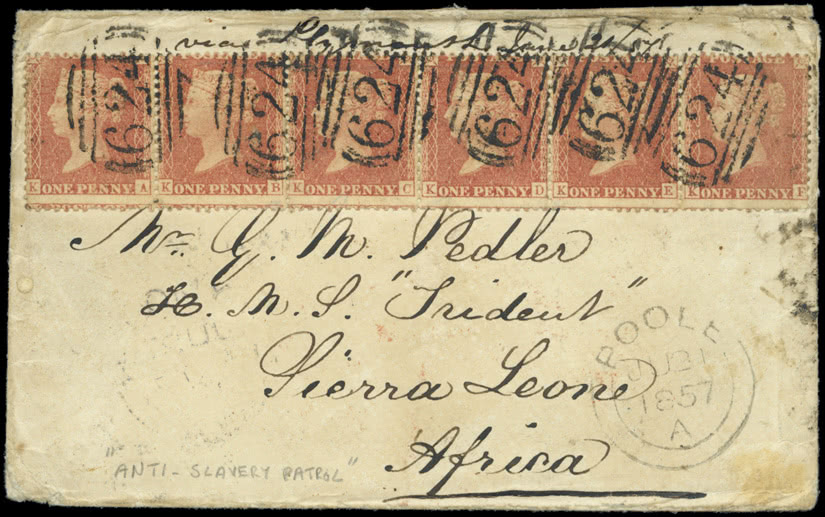 via Plymouth June 21/57
624 624 624 624 624 624
K ONE PENNY A K ONE PENNY B K ONE PENNY C K ONE PENNY D K ONE PENNY E K ONE PENNY F
Mr. G. M. Pedler
H. M. S. "Trident"
Sierra Leone
Africa
POOLE
JU 21
1857
A
"ANTI-SLAVERY PATROL"